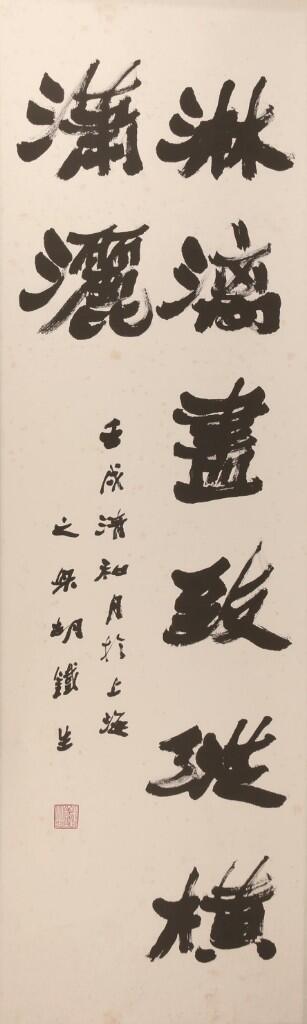 淋漓盡致縱橫
瀟灑
壬戌清和月於上海
之梁胡鐵生